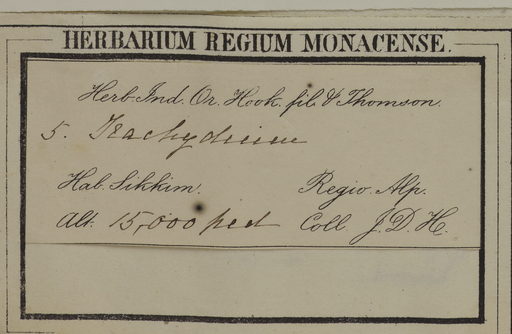 HERBARIUM REGIUM MONACENSE.
Herb. Ind. Or. Hook. fil. & Thomson.
5. Trachydium
Hab. Sikkim. Regio. Alp.
Alt. 15,000 ped Coll J. D. H.